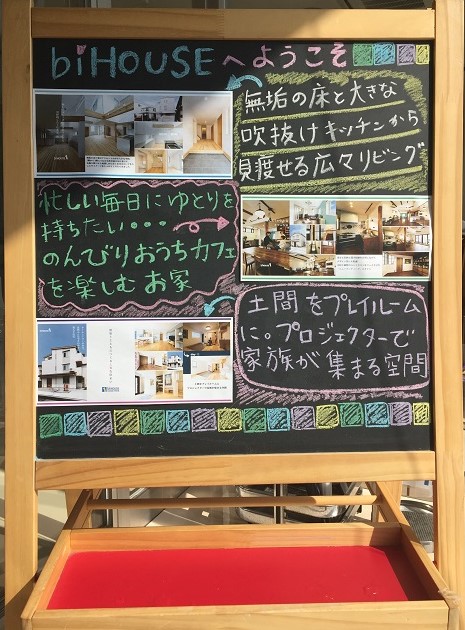 biHOUSEへようこそ
無垢の床と大きな
吹抜けキッチンから
見渡せる広々リビング
忙しい毎日にゆとりを
持ちたい・・・
のんびりおうちカフェ
を楽しむお家
土間をプレイルーム
に。プロジェクターで
家族が集まる空間